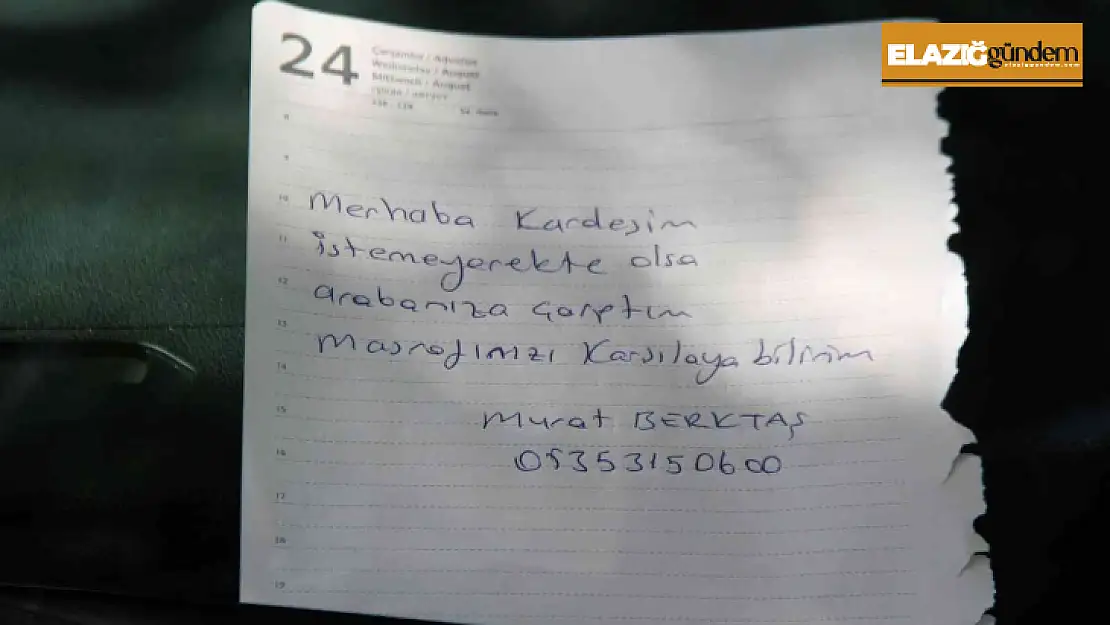 ELAZIĞ gündem
24
Çarşamba / Ağustos
Wednesday / August
Mittwoch / August
8
9
10 Merhaba Kardeşim
11 istemeyerekte olsa
12 arabanıza çarptım
13 Masrafınızı Karşılaya bilirim
14
15 Murat BERKTAŞ
16 05353150600
17
18
19